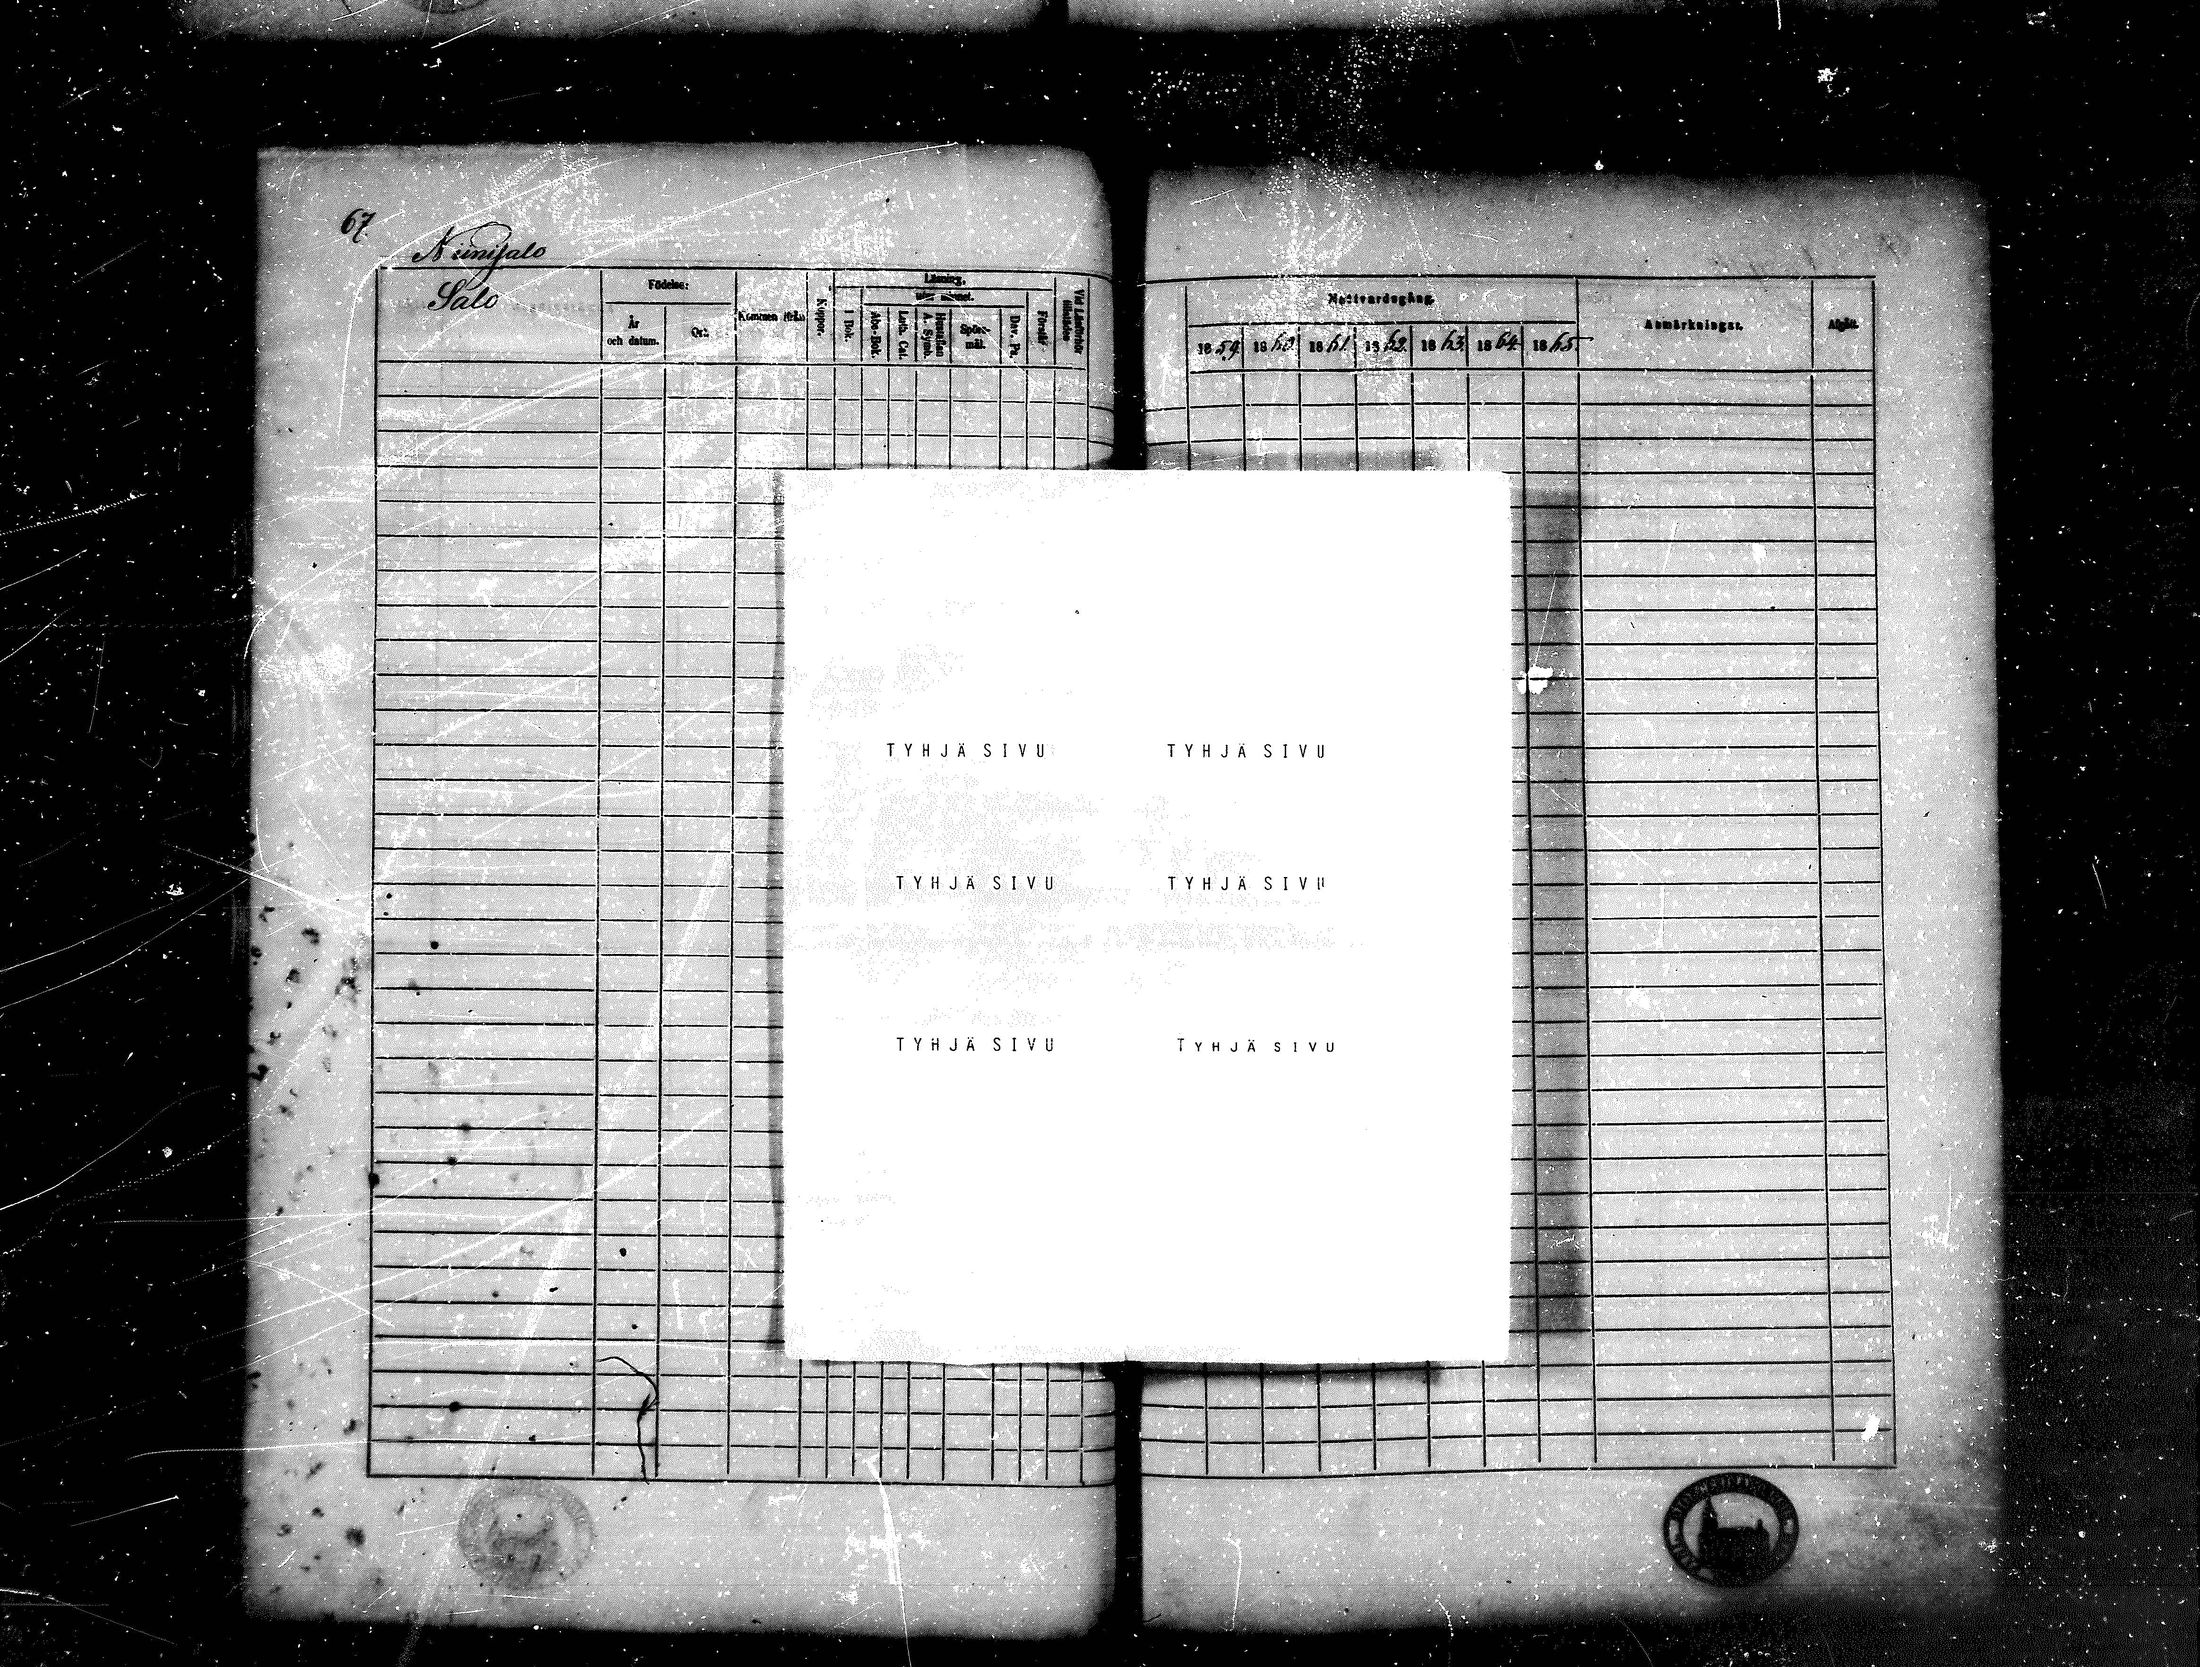 67.
Niinisalo
Salo
Födelse:
År
och datum.
Ort.
Kommen ifrån
Koppor.
Läsning,
I Bok.
Abc-Bok.
Luth. Cat.
Hustaflan
A. Symb.
Spörs-
mål.
Dav. Ps.
Förstår
Nattvardsgång.
1859 1860 1861 1862 1863 1864 1865
Anmärkningar.
Afgått.
TYHJÄ SIVU TYHJÄ SIVU
TYHJÄ SIVU TYHJÄ SIVU
TYHJÄ SIVU TYHJÄ SIVU